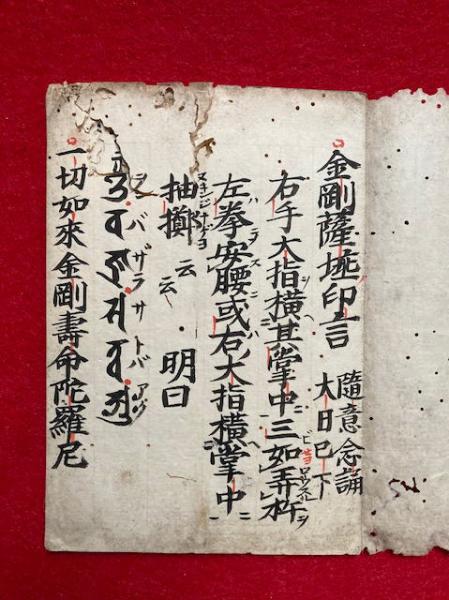 金剛薩埵印言
隨意念誦
大日已下
右手大指横其掌中三如弄杵
左拳安腰或右大指横掌中
抽擲云云 明曰
バザラサトバアク
一切如來金剛壽命陀羅尼